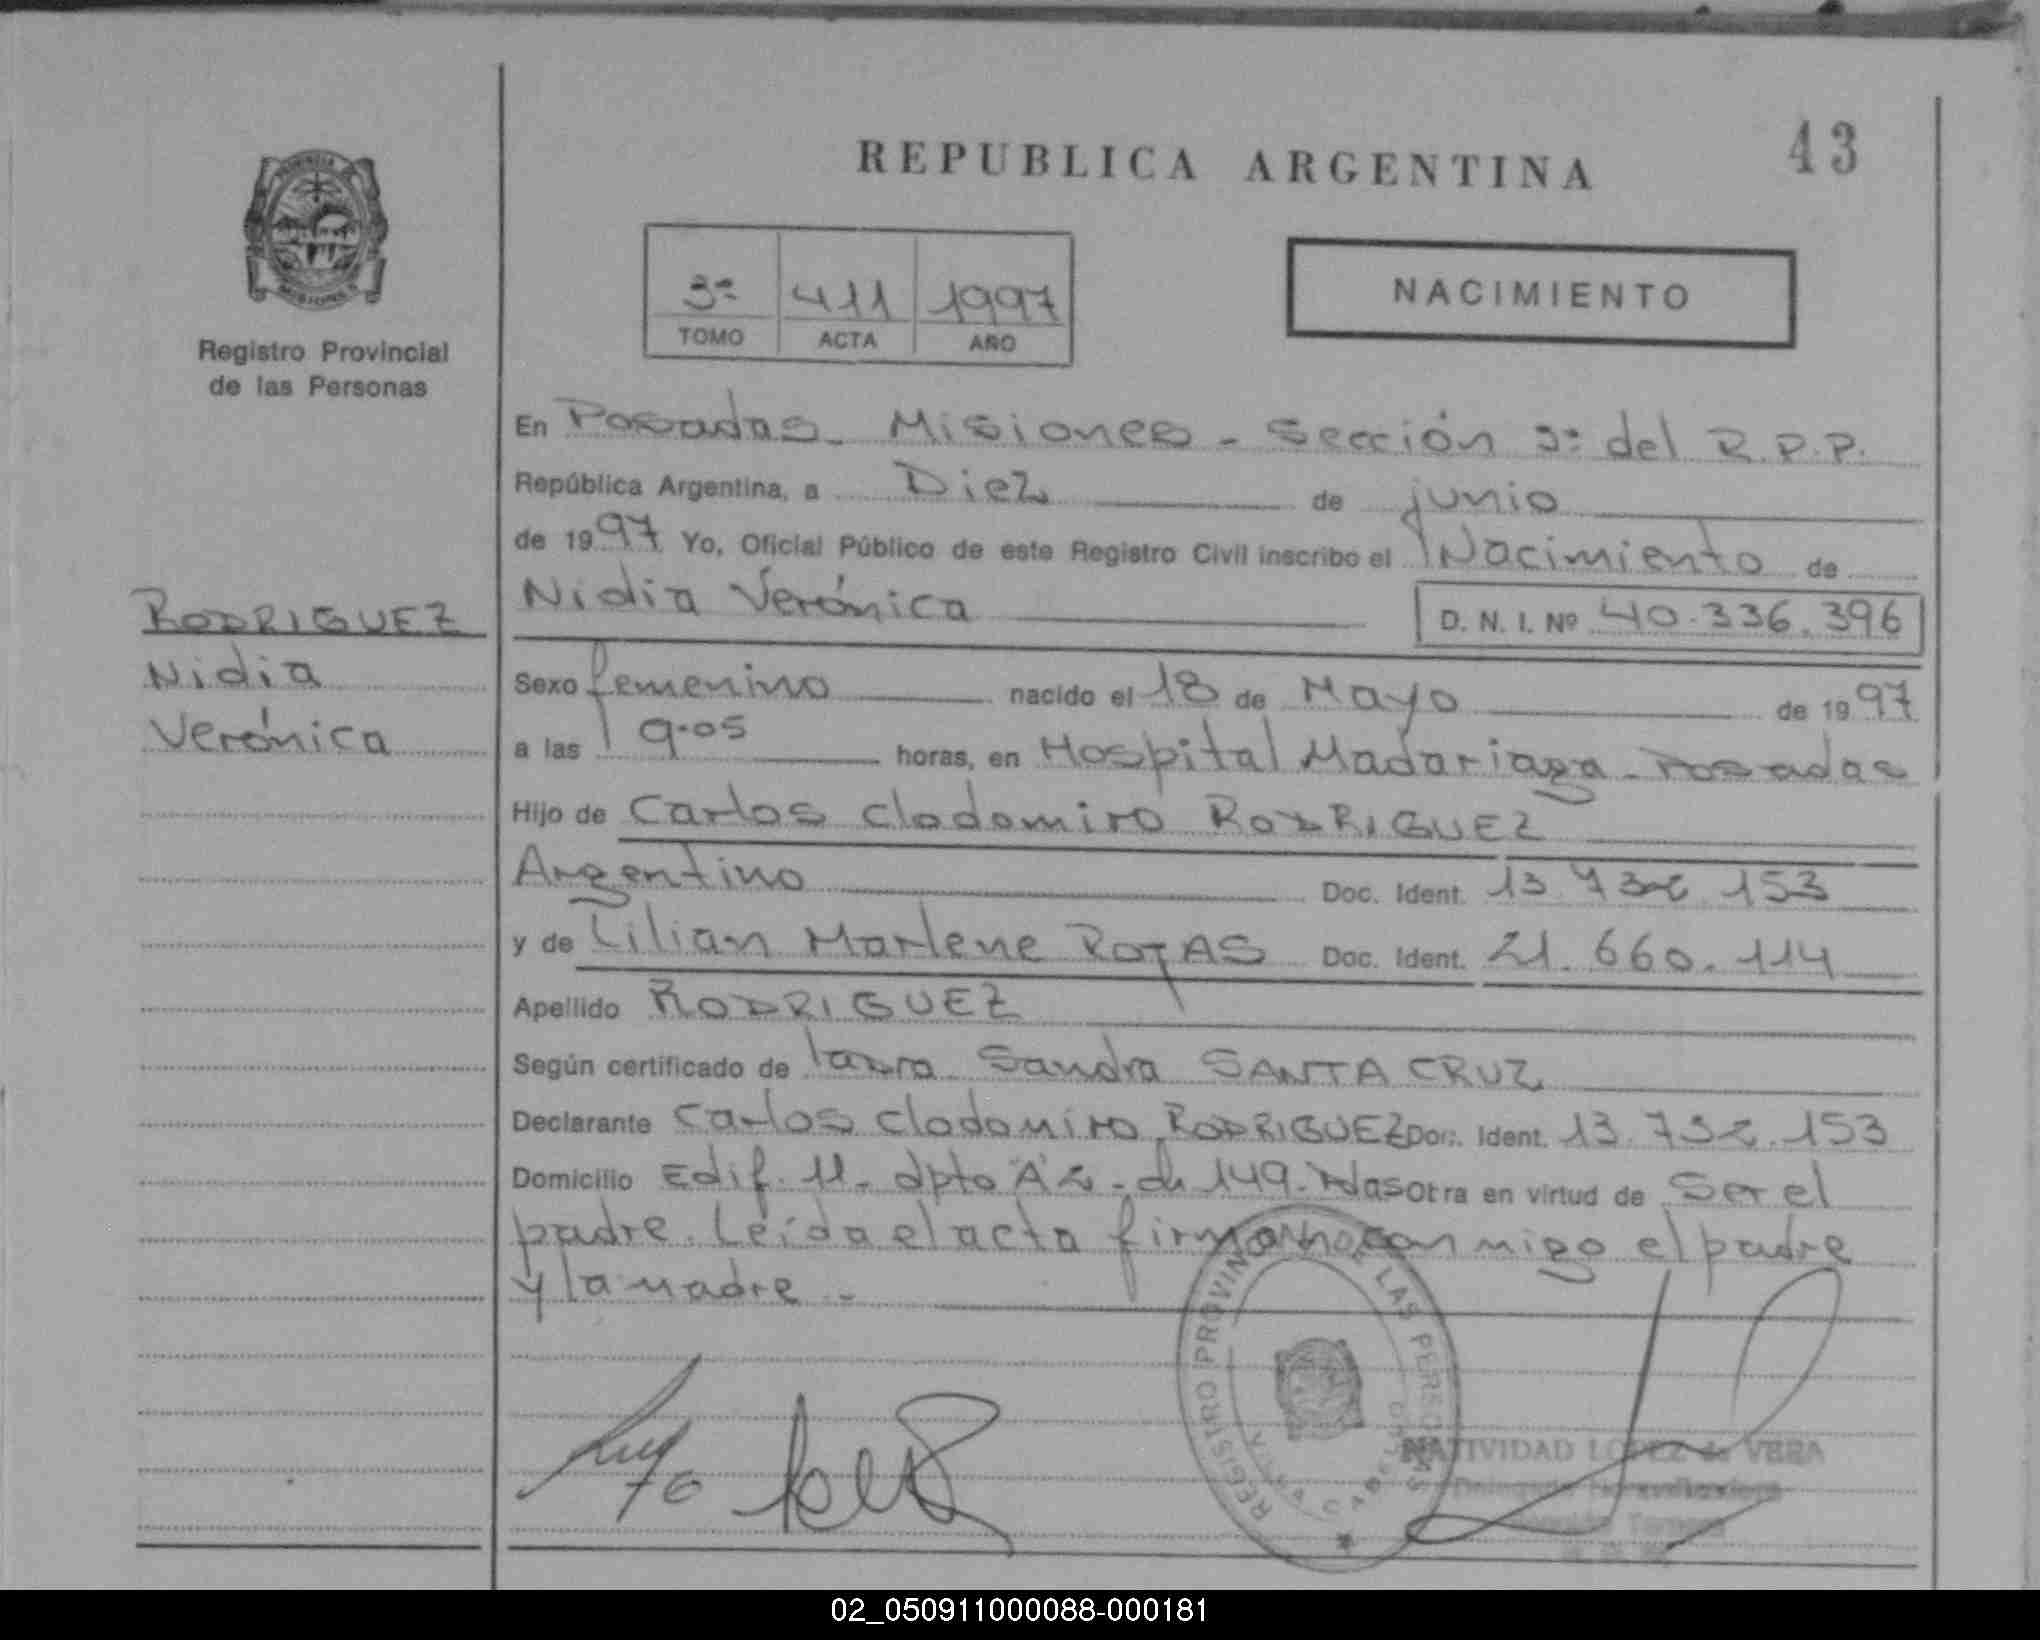 REPUBLICA ARGENTINA
43
PROVINCIA
MISIONES
Registro Provincial
de las Personas
3º 411 1997
TOMO ACTA AÑO
NACIMIENTO
RODRIGUEZ
Nidia
Verónica
En Posadas - Misiones - Sección 3º del R.P.P.
República Argentina, a Diez de junio
de 1997 Yo, Oficial Público de este Registro Civil inscribo el Nacimiento de
Nidia Verónica D. N. I. Nº 40.336.396
Sexo femenino nacido el 18 de Mayo de 1997
a las 9.05 horas, en Hospital Madariaga - Posadas
Hijo de Carlos Clodomiro RODRIGUEZ
Argentino Doc. Ident. 13.732.153
y de Lilian Marlene ROJAS Doc. Ident. 21.660.114
Apellido RODRIGUEZ
Según certificado de Sandra SANTA CRUZ
Declarante Carlos Clodomiro RODRIGUEZ Doc. Ident. 13.732.153
Domicilio Edif. 11 - dpto A 2 - ch 149 - Pdas otra en virtud de Ser el
padre. Leída el acta firman conmigo el padre
y la madre.-
REGISTRO PROVINCIAL DE LAS PERSONAS
NATIVIDAD LOPEZ de VERA
02_050911000088-000181